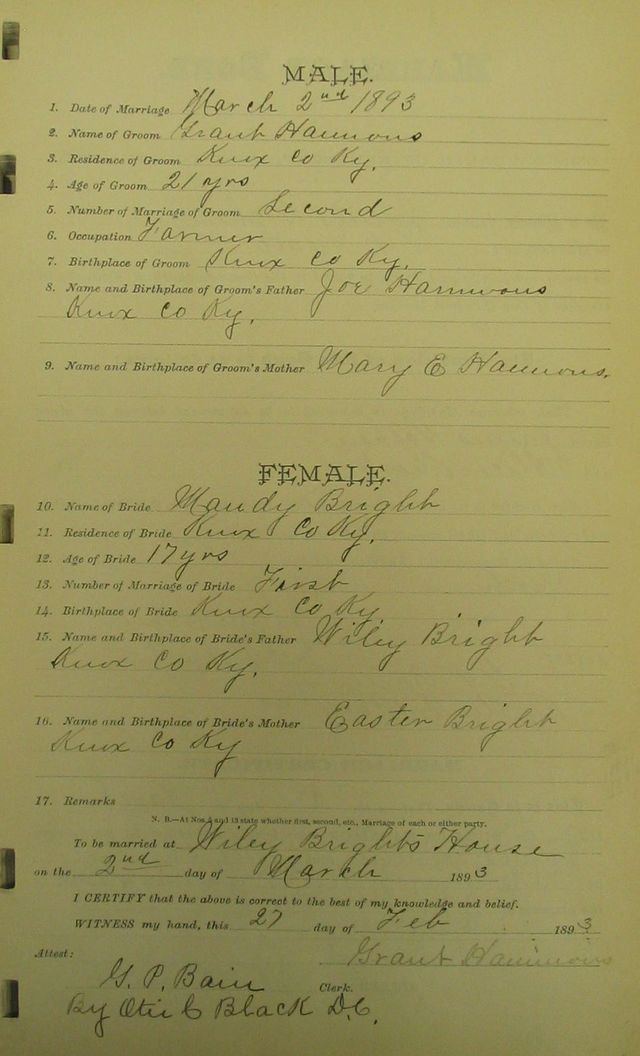 MALE.
1. Date of Marriage March 2nd 1893
2. Name of Groom Grant Hammons
3. Residence of Groom Knox Co Ky.
4. Age of Groom 21 yrs
5. Number of Marriage of Groom Second
6. Occupation Farmer
7. Birthplace of Groom Knox Co Ky.
8. Name and Birthplace of Groom's Father Joe Hammons
Knox Co Ky.
9. Name and Birthplace of Groom's Mother Mary E Hammons.
FEMALE.
10. Name of Bride Mandy Bright
11. Residence of Bride Knox Co Ky.
12. Age of Bride 17 yrs
13. Number of Marriage of Bride First
14. Birthplace of Bride Knox Co Ky
15. Name and Birthplace of Bride's Father Wiley Bright
Knox Co Ky.
16. Name and Birthplace of Bride's Mother Easter Bright
Knox Co Ky
17. Remarks
N. B.—At Nos. 5 and 13 state whether first, second, etc., Marriage of each or either party.
To be married at Wiley Bright's House
on the 2nd day of March 1893
I CERTIFY that the above is correct to the best of my knowledge and belief.
WITNESS my hand, this 27 day of Feb 1893
Grant Hammons
Attest:
G. P. Bain Clerk.
By Otis C Black D.C.